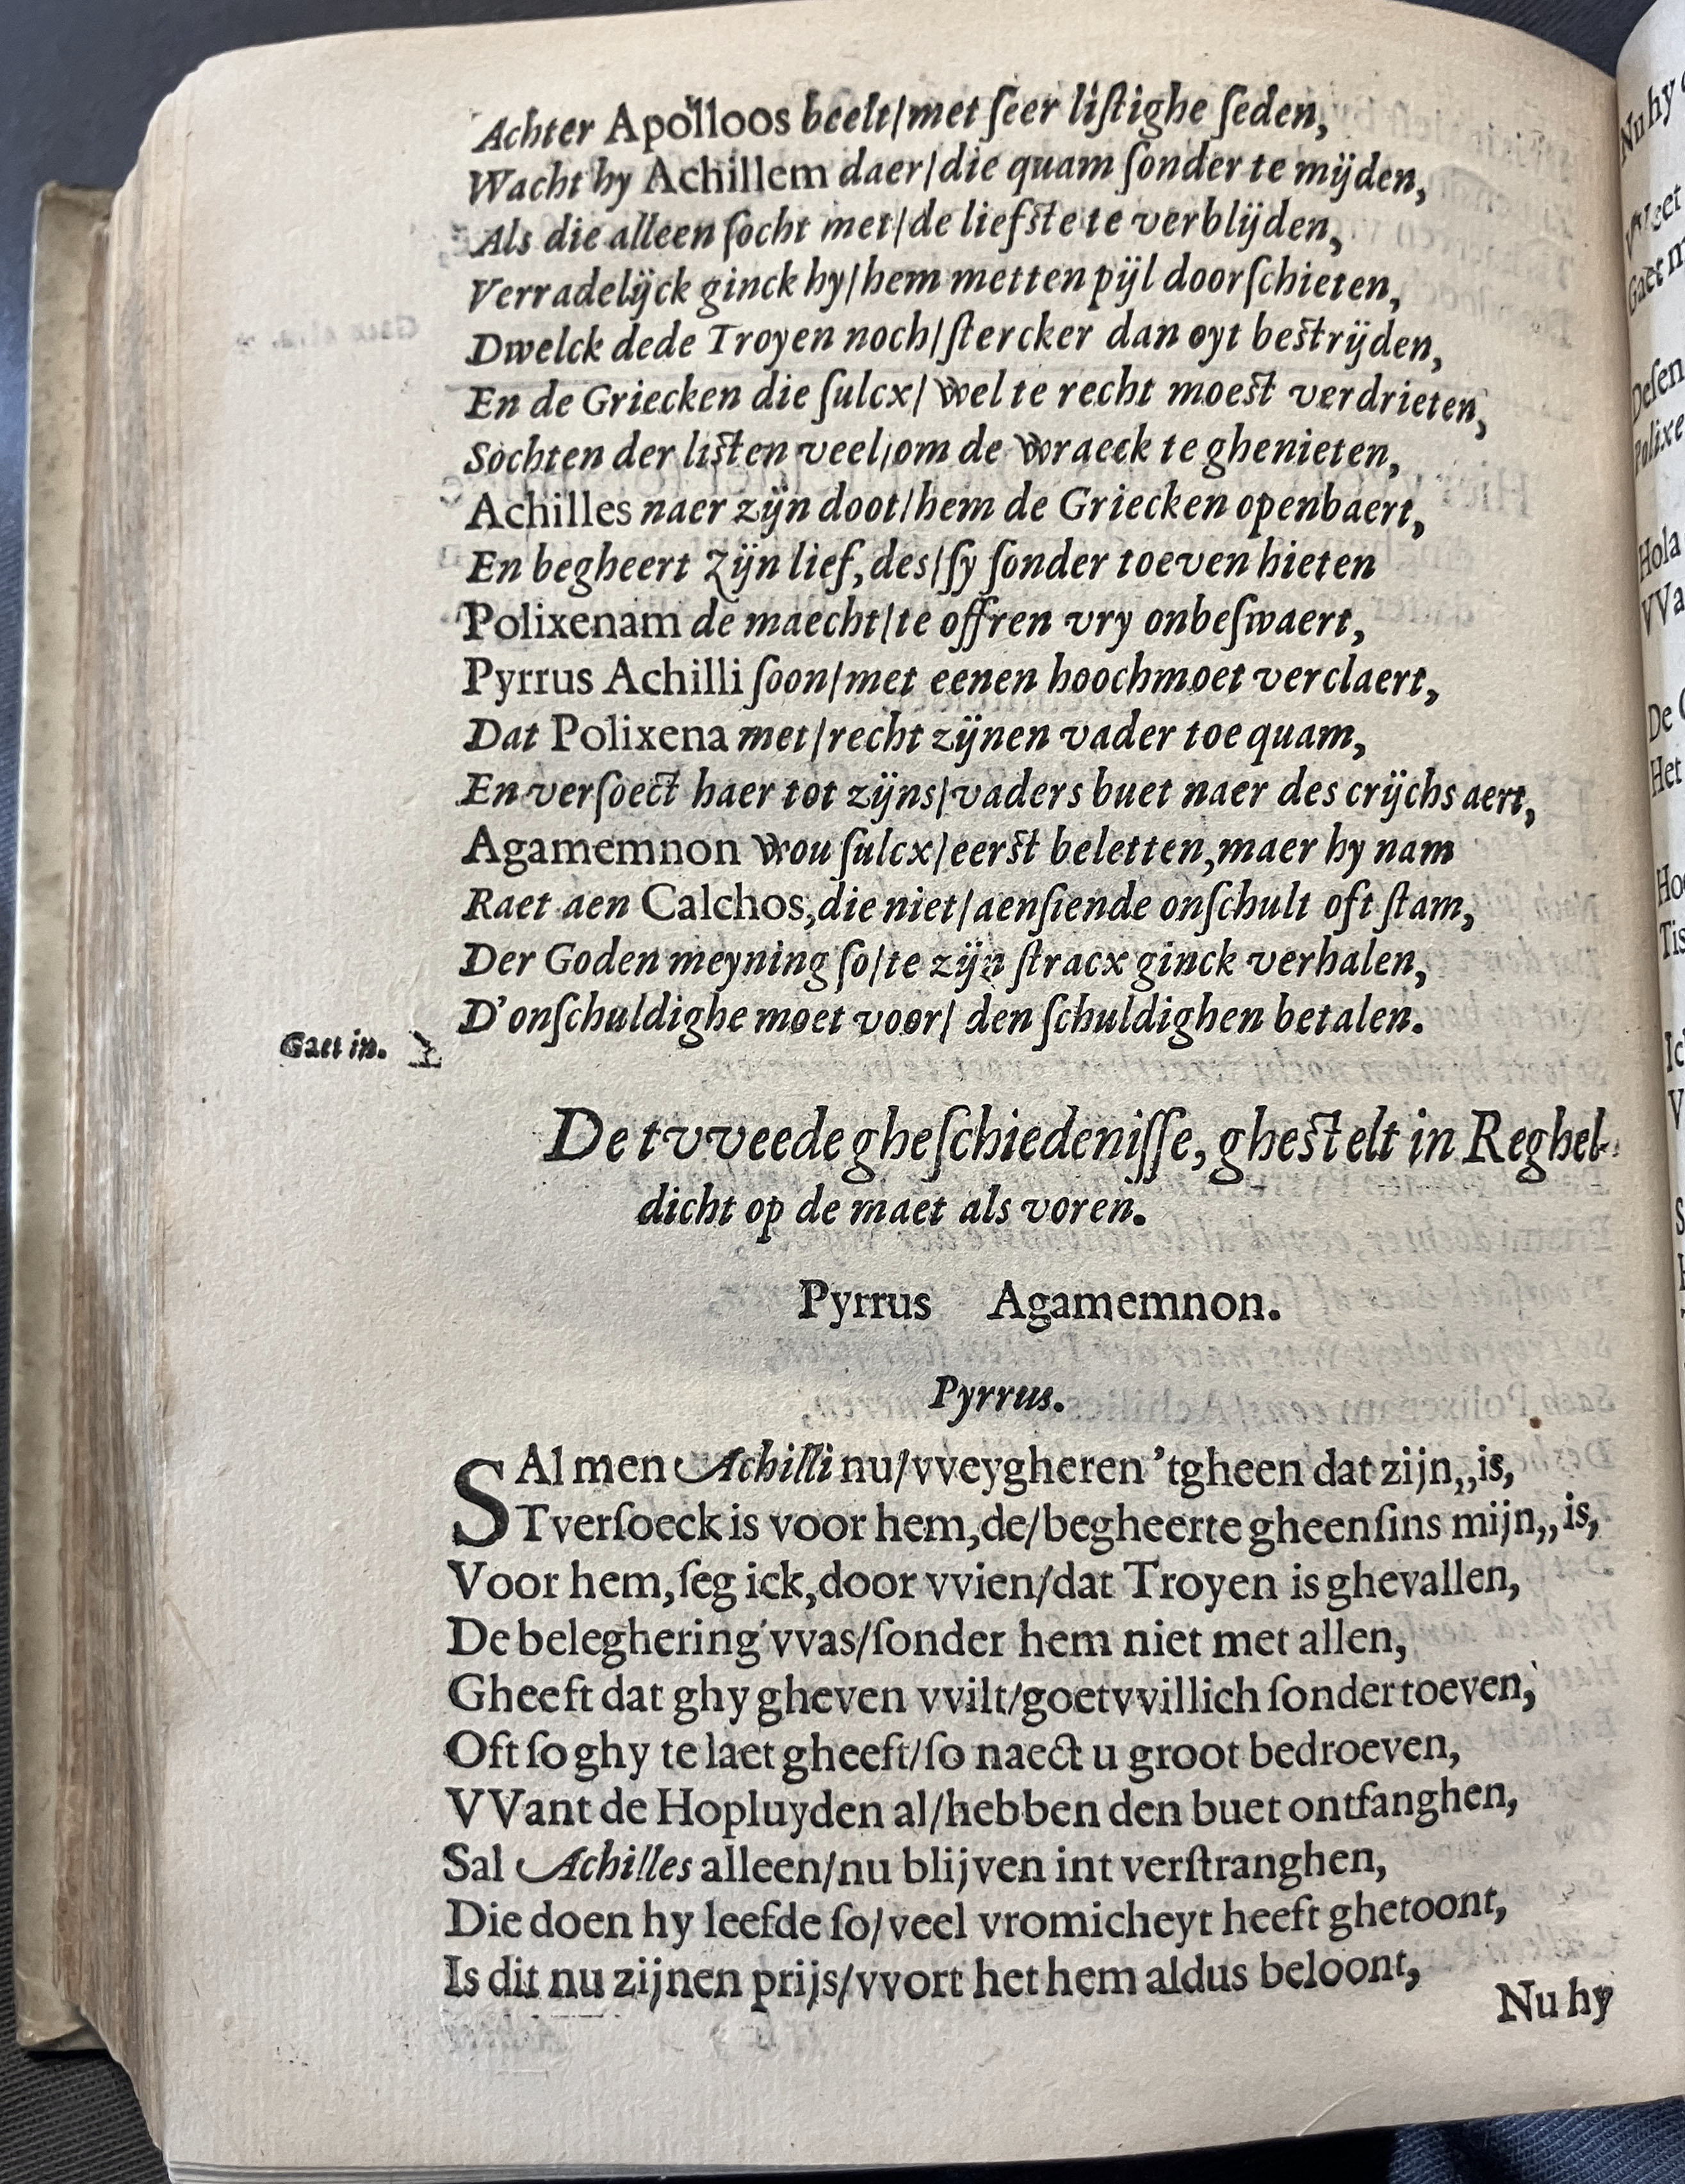 Achter Apolloos beelt/met ſeer liſtighe ſeden,
Wacht hy Achillem daer/die quam ſonder te mijden,
Als die alleen ſocht met/de liefſte te verblijden,
Verradelijck ginck hy/hem metten pijl doorſchieten,
Dwelck dede Troyen noch/ſtercker dan oyt beſtrijden,
En de Griecken die ſulcx/wel te recht moeſt verdrieten,
Sochten der liſten veel/om de wraeck te ghenieten,
Achilles naer zijn doot/hem de Griecken openbaert,
En begheert zijn lief,des/ſy ſonder toeven hieten
Polixenam de maecht/te offren vry onbeſwaert,
Pyrrus Achilli ſoon/met eenen hoochmoet verclaert,
Dat Polixena met/recht zijnen vader toe quam,
En verſoect haer tot zijns/vaders buet naer des crijchs aert,
Agamemnon wou ſulcx/eerſt beletten,maer hy nam
Raet aen Calchos,die niet/aenſiende onſchult oft ſtam,
Der Goden meyning ſo/te zijn ſtracx ginck verhalen,
D'onſchuldighe moet voor/ den ſchuldighen betalen.
Gaet in.
De tvveede gheſchiedeniſſe, gheſtelt in Reghel-
dicht op de maet als voren.
Pyrrus Agamemnon.
Pyrrus.
SAl men Achilli nu/vveygheren 'tgheen dat zijn,,is,
Tverſoeck is voor hem,de/begheerte gheenſins mijn,,is,
Voor hem,ſeg ick,door vvien/dat Troyen is ghevallen,
De beleghering vvas/ſonder hem niet met allen,
Gheeft dat ghy gheven vvilt/goetvvillich ſonder toeven,
Oft ſo ghy te laet gheeft/ſo naect u groot bedroeven,
VVant de Hopluyden al/hebben den buet ontfanghen,
Sal Achilles alleen/nu blijven int verſtranghen,
Die doen hy leefde ſo/veel vromicheyt heeft ghetoont,
Is dit nu zijnen prijs/vvort het hem aldus beloont,
Nu hy